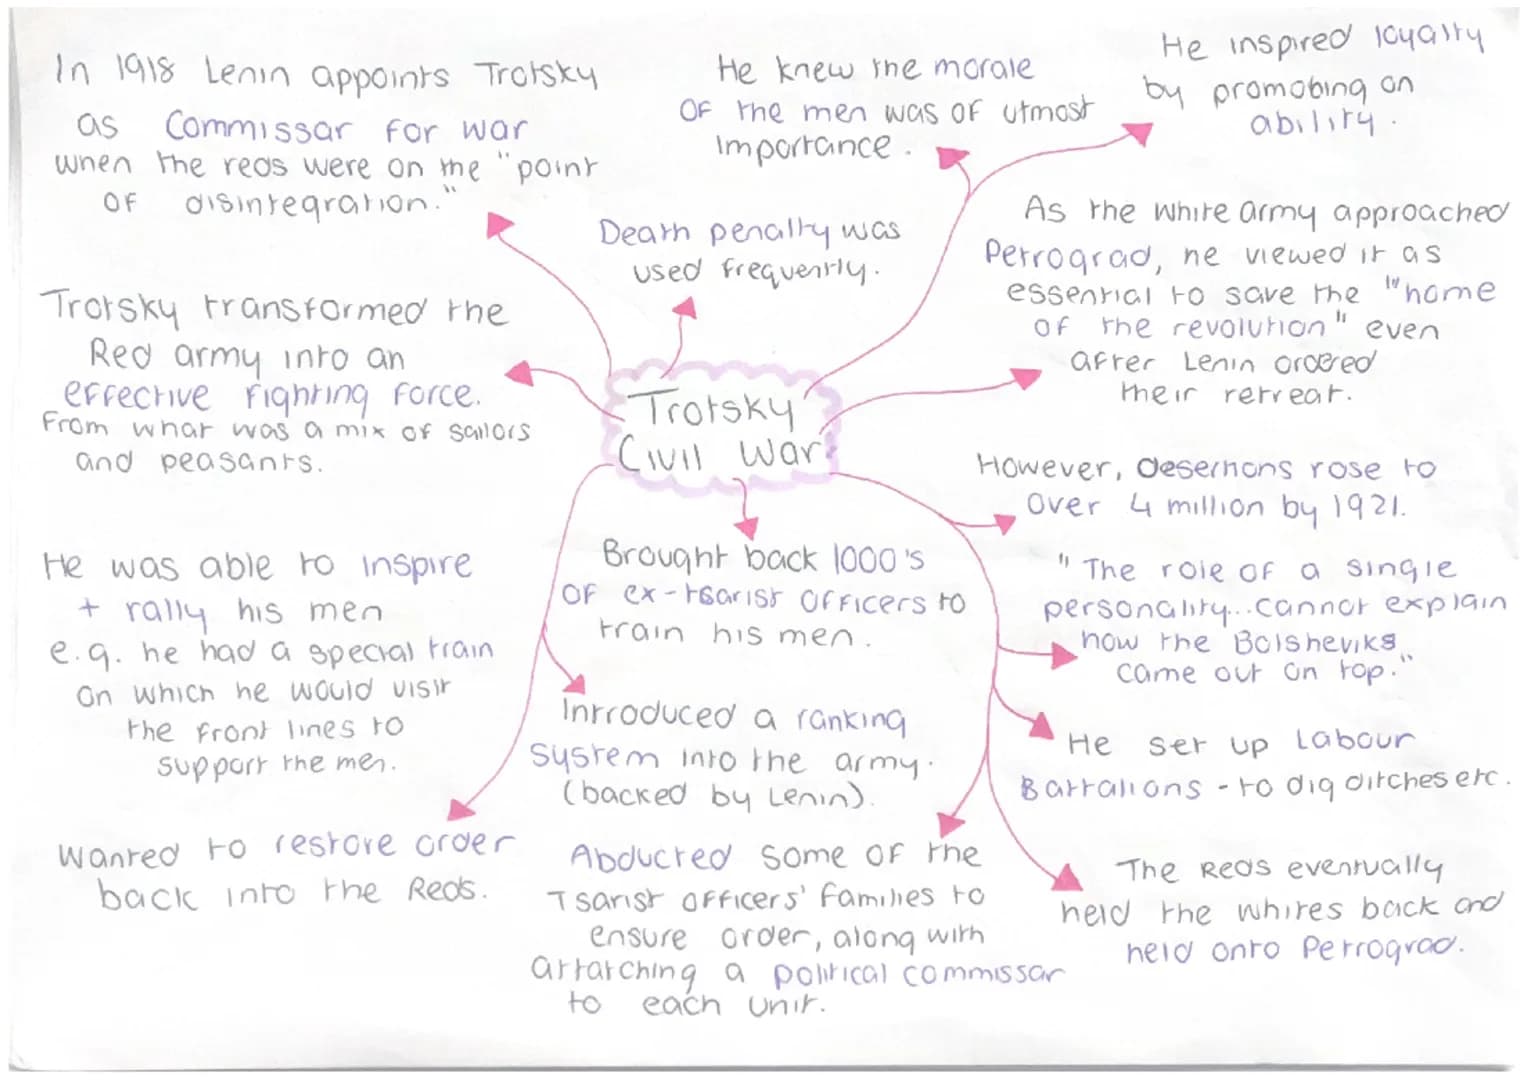 In 1918 Lenin appoints Trotsky
as Commissar for war
when the reds were on the "point
of disintegration."
He knew the morale
of the men was of utmost
importance.
He inspired loyalty
by promobing on
ability.
Death penalty was
used frequently.
As the White army approached
Petrograd, he viewed it as
essential to save the "home
of the revolution" even
after Lenin ordered
their retreat.
Trotsky transformed the
Red army into an
effective fighting force.
From what was a mix of sailors
and peasants.
Trotsky
Civil War
However, desertions rose to
over 4 million by 1921.
He was able to inspire
+ rally his men
e.g. he had a special train
on which he would visit
the front lines to
support the men.
Brought back 1000's
of ex-tsarist officers to
train his men.
"The role of a single
personality...cannot explain
how the Bolsheviks
came out on top."
Introduced a ranking
system into the army.
(backed by Lenin).
He set up Labour
Battalions - to dig ditches etc.
Wanted to restore order
back into the Reds.
Abducted some of the
Tsarist officers' families to
ensure order, along with
attatching a political commissar
to each unit.
The Reds eventually
held the whites back and
held onto Petrograd.